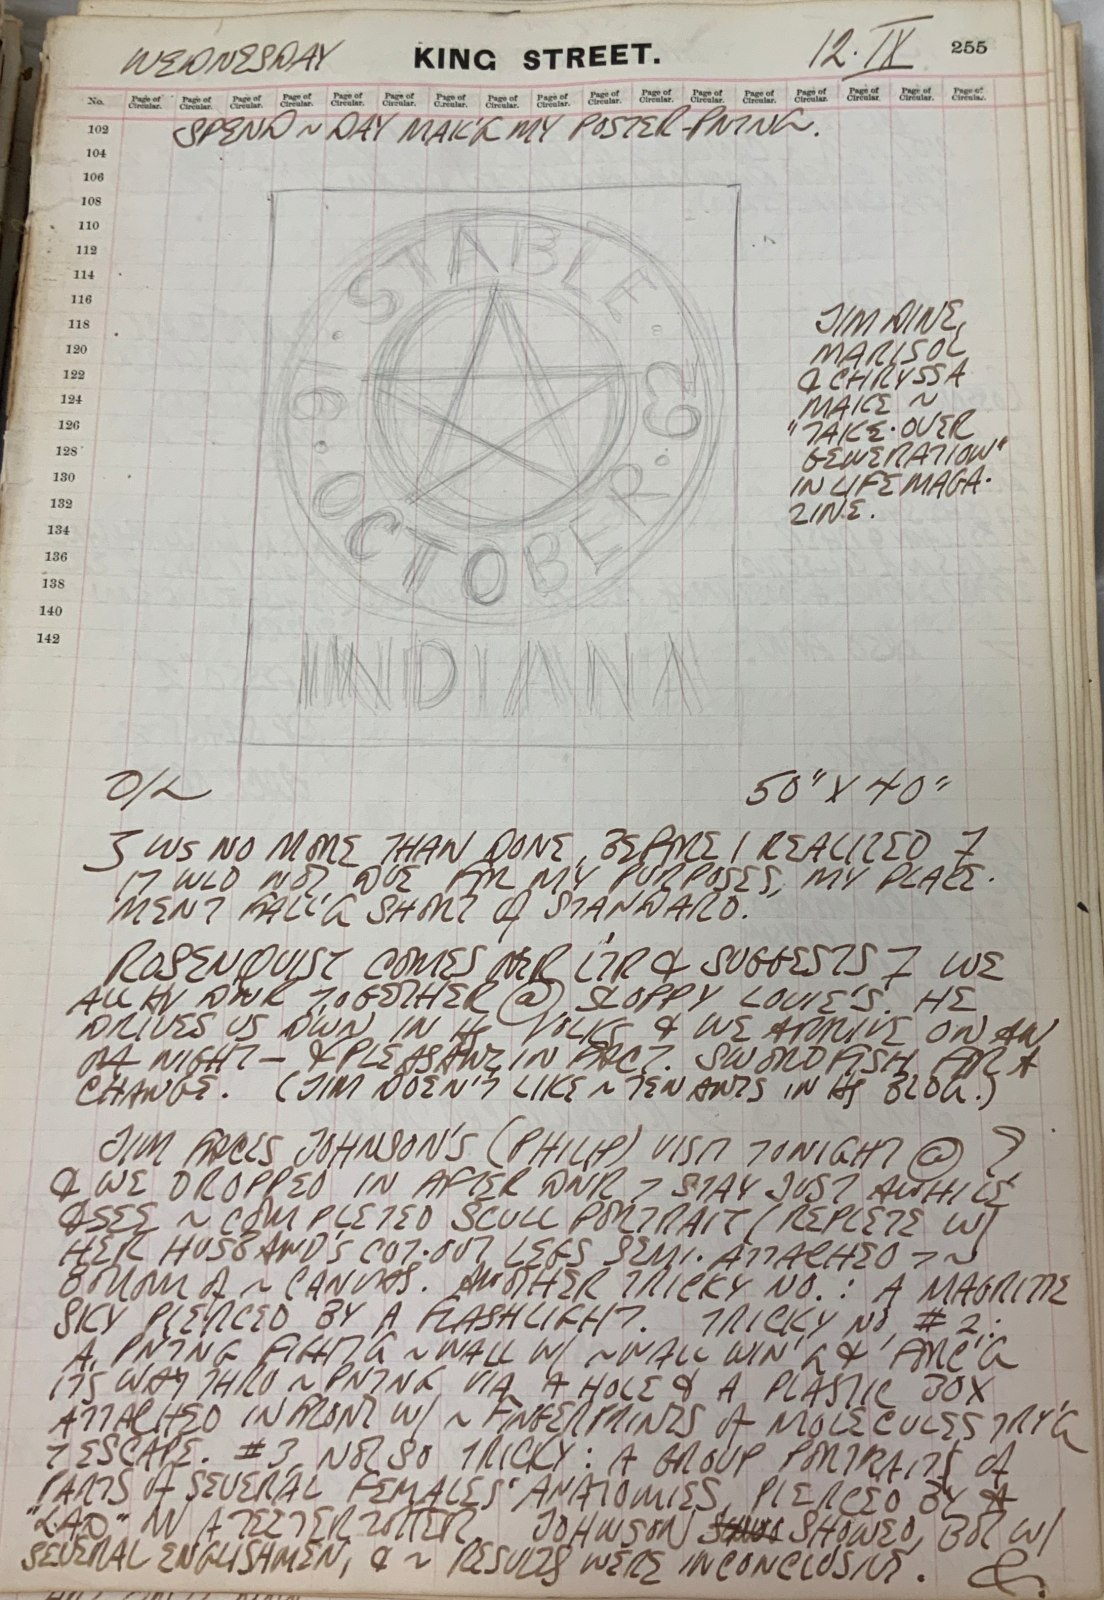 WEDNESDAY KING STREET. 12·IX 255
No. Page of Circular. Page of Circular. Page of Circular. Page of Circular. Page of Circular. Page of Circular. Page of Circular. Page of Circular. Page of Circular. Page of Circular. Page of Circular. Page of Circular. Page of Circular. Page of Circular. Page of Circular. Page of Circular. Page of Circular.
102 SPEND ~ DAY MAK'G MY POSTER-PNTNG.
104
106
108
110
112
114
116
118
120
122
124
126
128
130
132
134
136
138
140
142
STABLE
63
OCTOBER
INDIANA
JIM DINE,
MARISOL
& CHRYSSA
MAKE ~
"TAKE·OVER
GENERATION"
IN LIFE MAGA·
ZINE.
O/L 50" X 40"
WS NO MORE THAN DONE, BEFORE I REALIZED 7
IT WLD NOT DUE FOR MY PURPOSES, MY PLACE·
MENT FALL'G SHORT of STANDARD.
ROSENQUIST COMES OVER LTR & SUGGESTS 7 WE
ALL HV DNR TOGETHER @ SLOPPY LOUIE'S. HE
DRIVES US DWN IN Hs VOLKS & WE ARRIVE ON AN
NIGHT — & PLEASANT IN FACT. SWORDFISH FOR A
CHANGE. (JIM DOEN'T LIKE ~ TENANTS IN Hs BLDG.)
JIM JOHNSON'S (PHILIP) VISIT TONIGHT @ 7
& WE DROPPED IN AFTER DNR 7 STAY JUST AWHILE
& SEE ~ COMPLETED SCULL PORTRAIT (REPLETE W/
HER HUSBAND'S CUT·OUT LEGS SEMI·ATTACHED 7 ~
BOTTOM of ~ CANVAS. ANOTHER TRICKY NO.: A MAGRITTE
SKY PIERCED BY A FLASHLIGHT. TRICKY NO. #2:
A PNTNG FIGHT'G ~ WALL W/ ~ WALL WIN'G & FORC'G
ITS WAY THRO ~ PNTNG VIA A HOLE & A PLASTIC BOX
ATTACHED IN FRONT W/ ~ FINGERPRINTS of MOLECULES TRY'G
7 ESCAPE. #3, NOT SO TRICKY: A GROUP PORTRAIT of
PARTS of SEVERAL FEMALES' ANATOMIES, PIERCED BY A
"LAD" ON A TEETERTOTTER. JOHNSON SHOWED, BUT W/
SEVERAL ENGLISHMEN, & ~ RESULTS WERE INCONCLUSIVE.